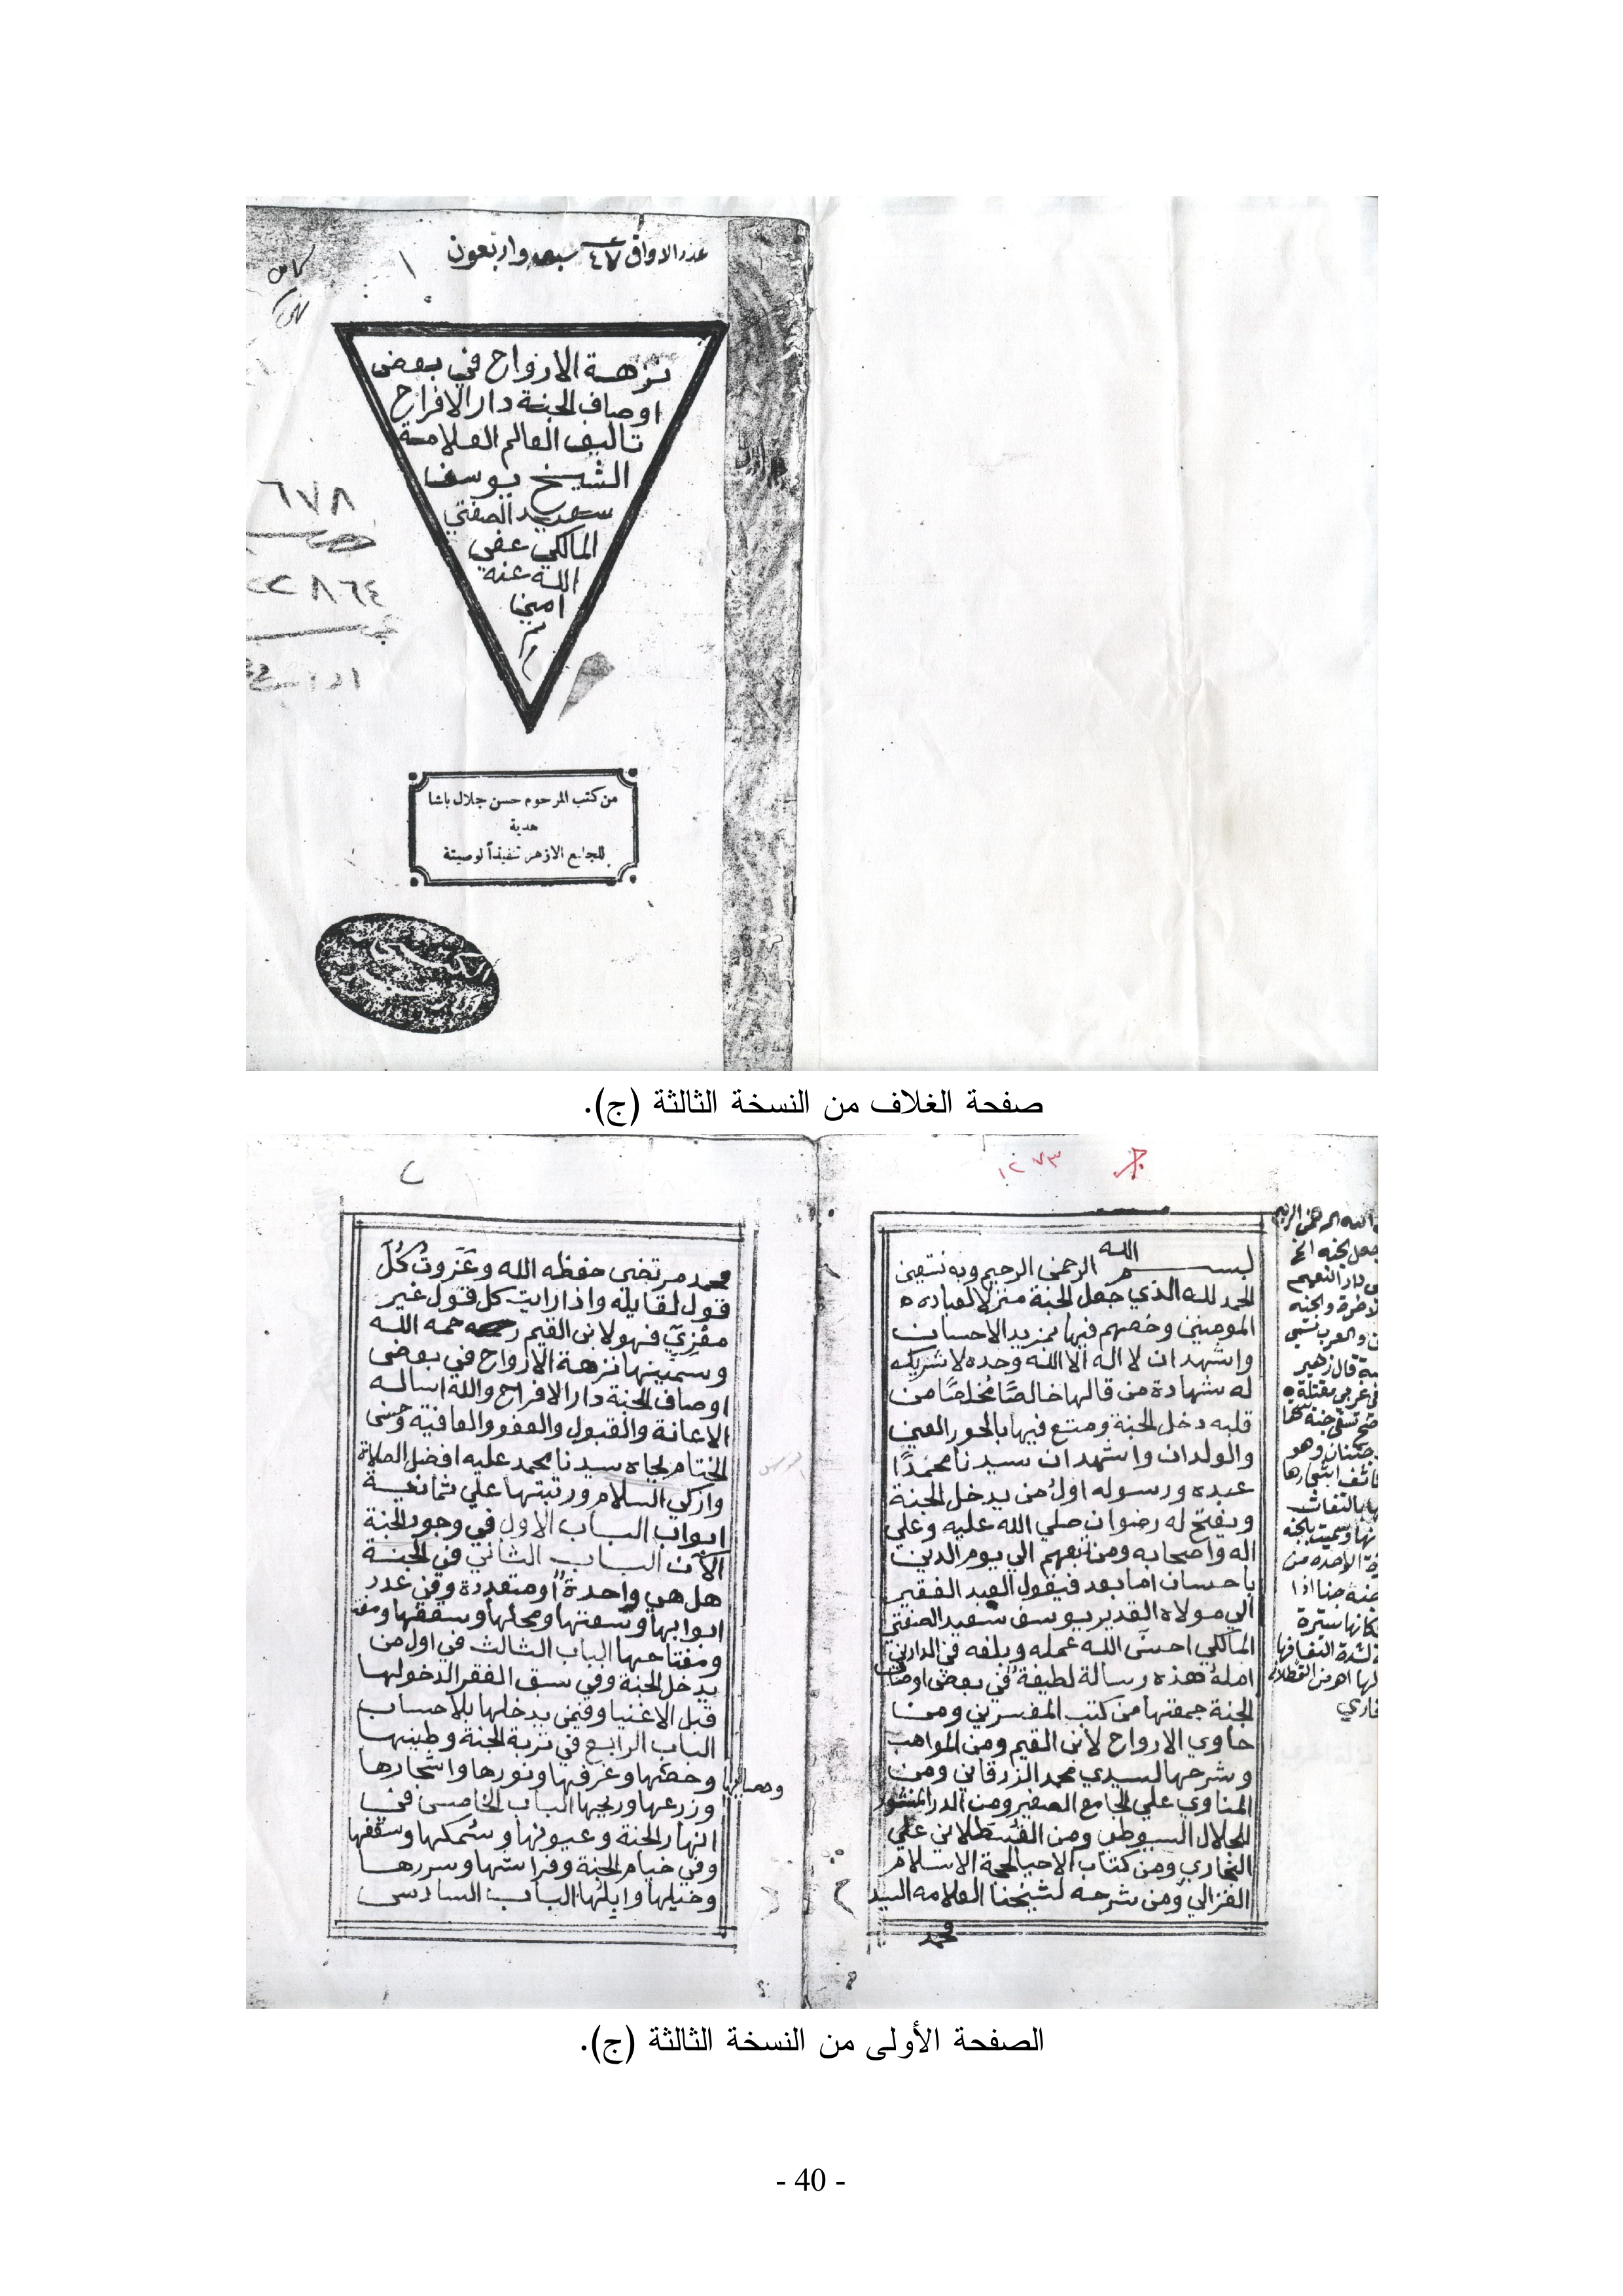 عدد الاواق ٤٧ سبعه واربعون
١
نزهة الارواح في بعض
اوصاف الجنة دار الافراح
تاليف العالم العلامة
الشيخ يوسف
سعيد الصفتي
المالكي عفي
الله عنه
امين
٦٧٨
٢٢٨٦٤
من كتب المرحوم حسن جلال باشا
هدية
للجامع الازهر تنفيذاً لوصيتة
صفحة الغلاف من النسخة الثالثة (ج).
١٢٧٣
بسم الله الرحمن الرحيم وبه نستعين
الحمد لله الذي جعل الجنة منزلا لعباده
المومنين وخصهم فيها بمزيد الاحسان
واشهد ان لا اله الا الله وحده لا شريك
له شهادة من قالها خالصًا مُخلصًا من
قلبه دخل الجنة ومتع فيها بالحور العين
والولدان واشهد ان سيدنا محمدًا
عبده ورسوله اول من يدخل الجنة
ويفتح له رضوان صلي الله عليه وعلي
اله واصحابه ومن تبعهم الي يوم الدين
باحسان اما بعد فيقول العبد الفقير
الي مولاه القدير يوسف سعيد الصفتي
المالكي احسن الله عمله وبلغه في الدارين
امله هذه رسالة لطيفة في بعض اوصاف
الجنة جمعتها من كتب المفسرين ومن
حاوي الارواح لابن القيم ومن المواهب
وشرحها لسيدي محمد الزرقاني ومن
المناوي علي الجامع الصغير ومن الدر المنثور
للجلال السيوطي ومن القسطلاني علي
البخاري ومن كتاب الاحيا لحجة الاسلام
الغزالي ومن شرحه لشيخنا العلامه السيد
محمد
الله الرحمن الرحيم
دار النعيم
والعرب تسمي
قال زهير
في غربي مقتلة
تسقي جنة سحقا
وهو
اشجارها
وسميت بالجنة
من
سترة
لشدة التفافها
اهـ من القسطلاني
٢
محمد مرتضى حفظه الله وعَزَوتُ كُلَّ
قول لقايله واذا رايت كل قول غير
مَعْزِيٍّ فهو لابن القيم رحمه الله
وسميتها نزهة الارواح في بعض
اوصاف الجنة دار الافراح والله اساله
الاعانة والقبول والعفو والعافية وحسن
الختام بجاه سيدنا محمد عليه افضل الصلاة
وازكي السلام ورتبتها علي ثمانية
ابواب الباب الاول في وجود الجنة
الآن الباب الثاني في الجنة
هل هي واحدة او متعددة وفي عدد
ابوابها وسعتها ومحلها وسقفها
ومفتاحها الباب الثالث في اول من
يدخل الجنة وفي سبق الفقرا لدخولها
قبل الاغنيا وفيمن يدخلها بلا حساب
الباب الرابع في تربة الجنة وطينها
وحصائها وغرفها ونورها واشجارها
وزرعها وريحها الباب الخامس في
انهار الجنة وعيونها وسمكها وسقفها
وفي خيام الجنة وفراشها وسررها
وخيلها وابلها الباب السادس
الصفحة الأولى من النسخة الثالثة (ج).
- 40 -